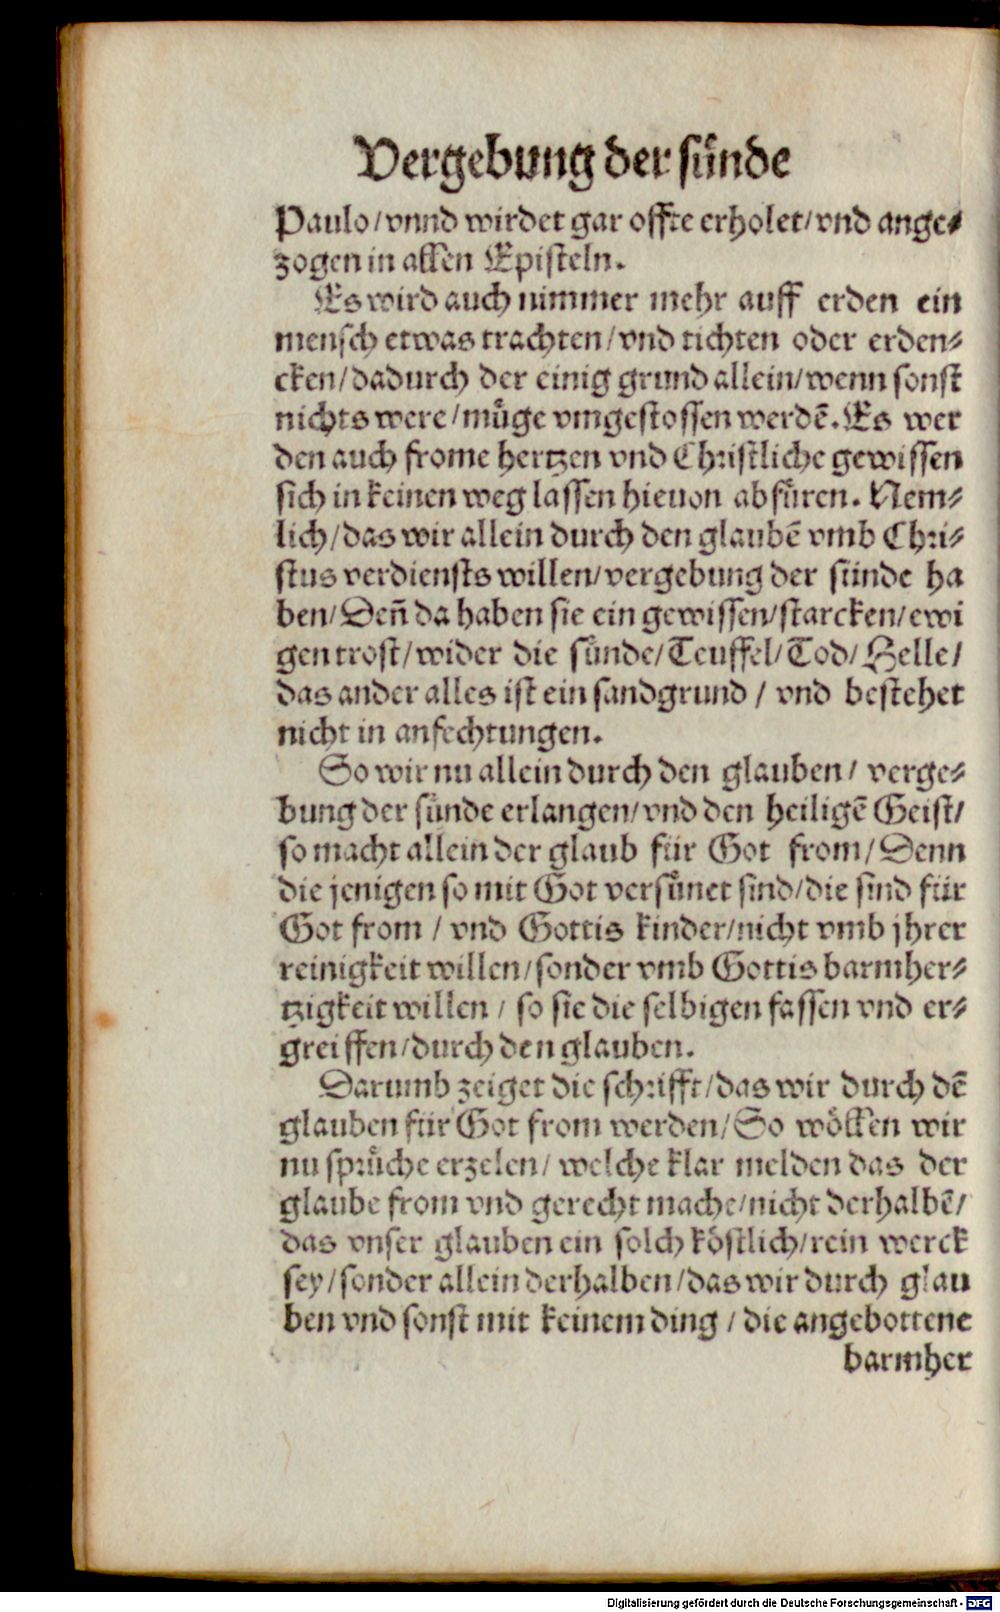 Vergebung der sünde
Paulo/vnnd wirdet gar offte erholet/vnd ange⸗
zogen in allen Episteln.
Es wird auch nimmer mehr auff erden ein
mensch etwas trachten/vnd tichten oder erden⸗
cken/dadurch der einig grund allein/wenn sonst
nichts were/müge vmgestossen werdē. Es wer
den auch frome hertzen vnd Christliche gewissen
sich in keinen weg lassen hieuon abfüren. Nem⸗
lich/das wir allein durch den glaubē vmb Chri⸗
stus verdiensts willen/vergebung der sünde ha
ben/Den̄ da haben sie ein gewissen/starcken/ewi
gen trost/wider die sünde/Teuffel/Tod/Helle/
das ander alles ist ein sandgrund / vnd bestehet
nicht in anfechtungen.
So wir nu allein durch den glauben/ verge⸗
bung der sünde erlangen/vnd den heiligē Geist/
so macht allein der glaub für Got from/Denn
die jenigen so mit Got versünet sind/die sind für
Got from / vnd Gottis kinder/nicht vmb jhrer
reinigkeit willen/sonder vmb Gottis barmher⸗
tzigkeit willen / so sie die selbigen fassen vnd er⸗
greiffen/durch den glauben.
Darumb zeiget die schrifft/das wir durch dē
glauben für Got from werden/So wöllen wir
nu sprüche erzelen/ welche klar melden das der
glaube from vnd gerecht mache/nicht derhalbē/
das vnser glauben ein solch köstlich/rein werck
sey/sonder allein derhalben/das wir durch glau
ben vnd sonst mit keinem ding / die angebottene
barmher
Digitalisierung gefördert durch die Deutsche Forschungsgemeinschaft - DFG